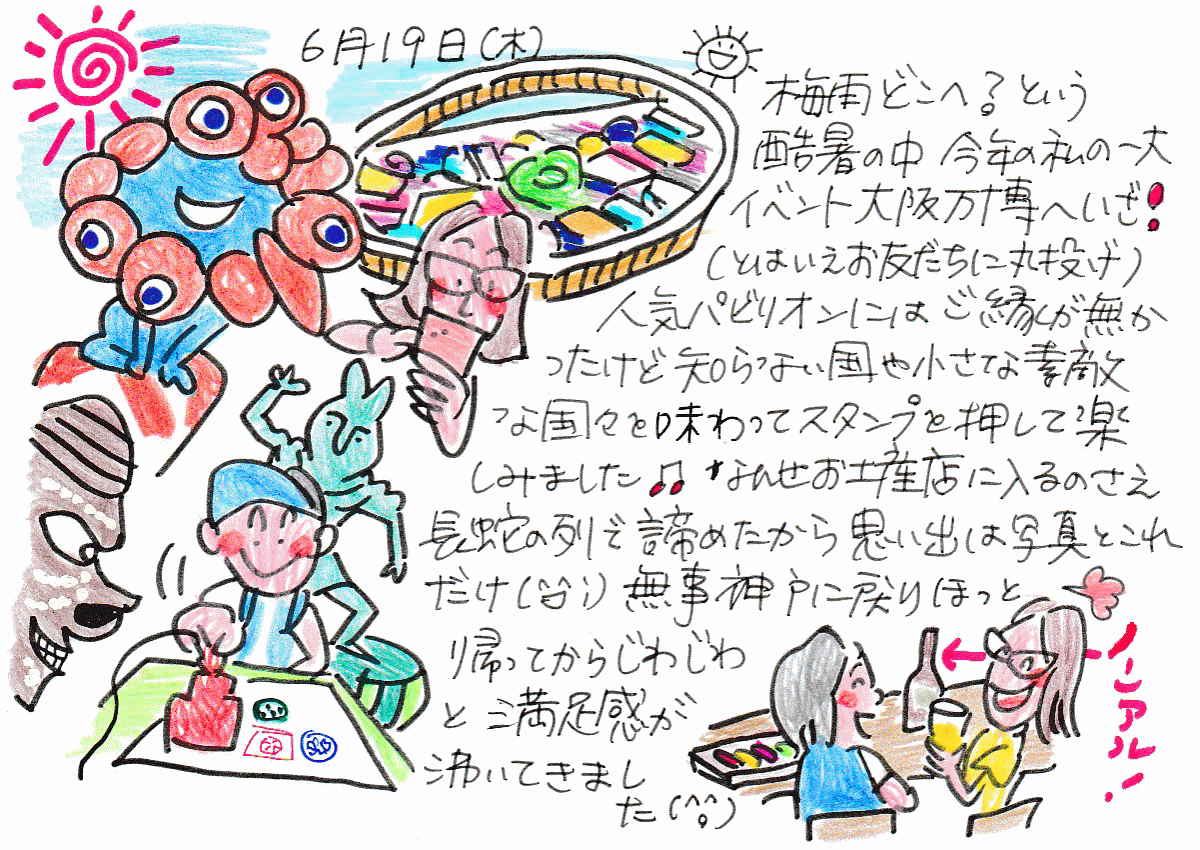 6月19日(木)
梅雨どこへ?という
酷暑の中 今年の私の一大
イベント大阪万博へいざ!
(とはいえお友だちに丸投げ)
人気パビリオンにはご縁が無か
ったけど知らない国や小さな素敵
な国々を味わってスタンプを押して楽
しみました♫ なんせお土産店に入るのさえ
長蛇の列で諦めたから思い出は写真とこれ
だけ(^^;) 無事神戸に戻りほっと
帰ってからじわじわ
と満足感が
沸いてきまし
た(^^)
ノンアル!